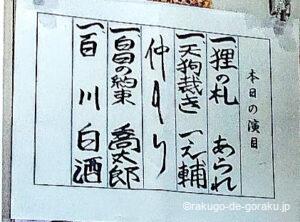 本日の演目
一 狸の札 あられ
一 天狗裁き 一之輔
仲入り
一 白日の約束 喬太郎
一 百川 白酒
©rakugo-de-goraku.jp